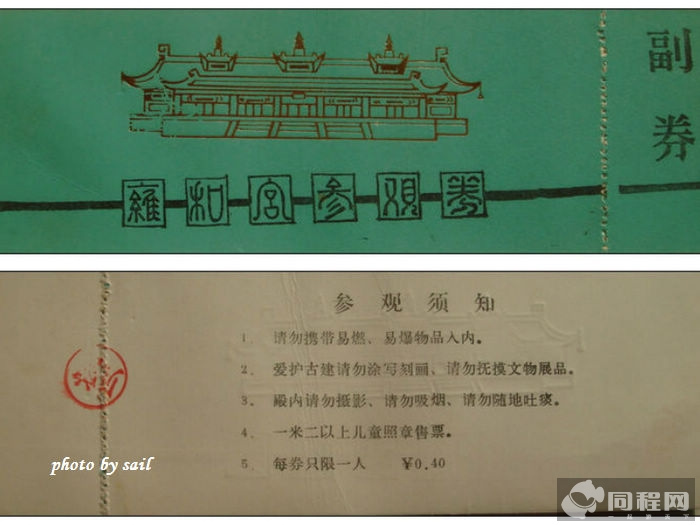 副券
雍和宫参观券
参观须知
1. 请勿携带易燃、易爆物品入内。
2. 爱护古建请勿涂写刻画、请勿抚摸文物展品。
3. 殿内请勿摄影、请勿吸烟、请勿随地吐痰。
4. 一米二以上儿童照章售票。
5. 每券只限一人 ￥0.40
photo by sail
同程网